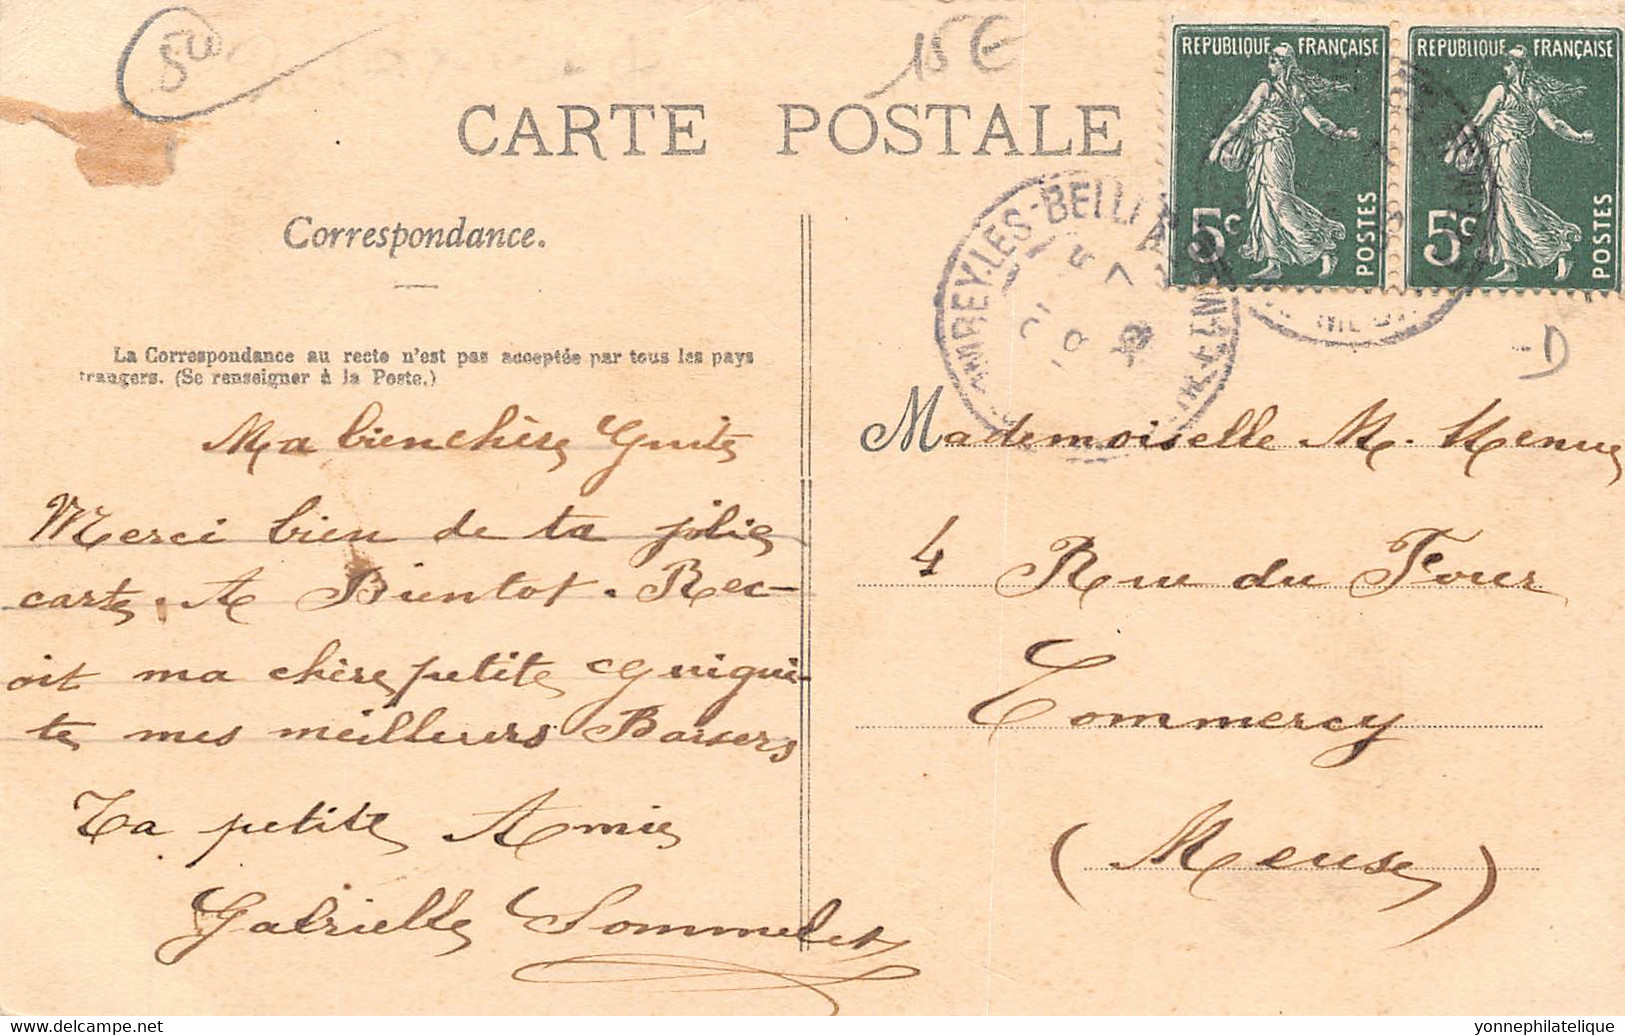 15€
CARTE POSTALE
RÉPUBLIQUE FRANÇAISE
5c POSTES
RÉPUBLIQUE FRANÇAISE
5c POSTES
Correspondance.
La Correspondance au recto n'est pas acceptée par tous les pays
trangers. (Se renseigner à la Poste.)
Ma bien chère Guite
Merci bien de ta jolie
carte. A Bientot. Rec-
oit ma chère petite Guigui-
te mes meilleurs Baisers
Ta petite Amie
Gabrielle Sommelet
REY-LES-BELL
D
Mademoiselle M. Menue
4 Rue du Four
Commercy
(Meuse)
www.delcampe.net
yonnephilatelique